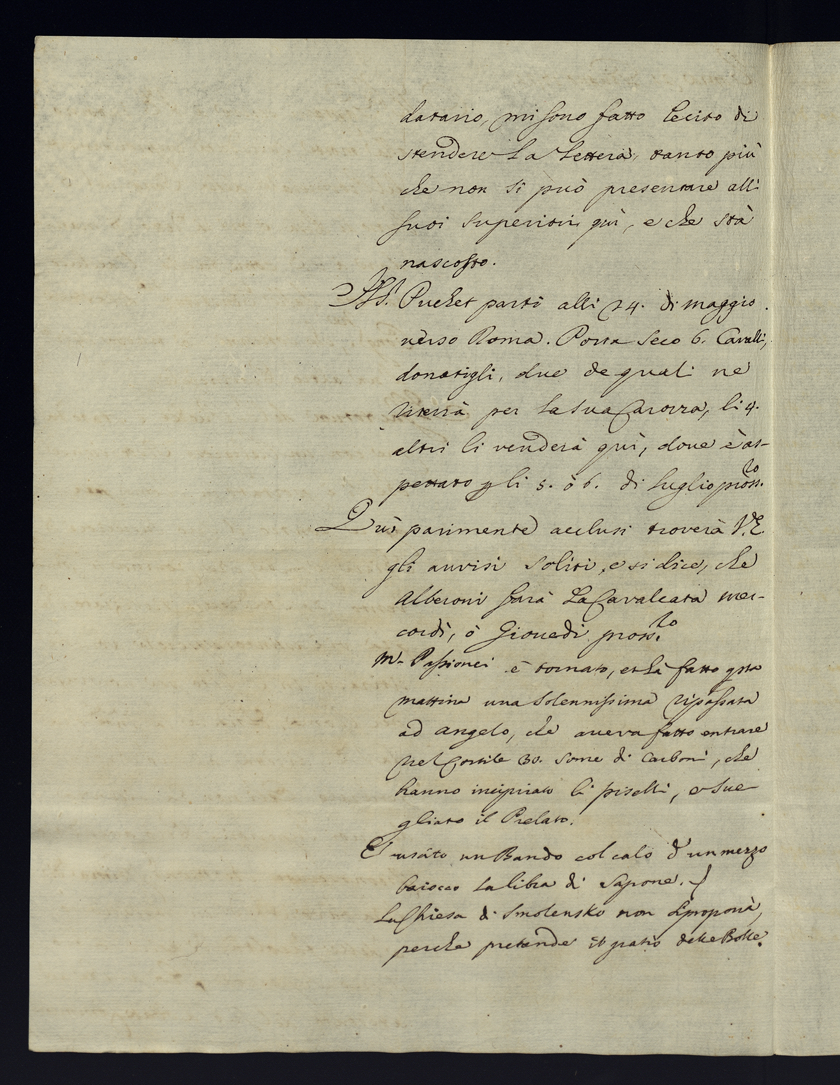 datario, mi sono fatto lecito di
stendere La Lettera, tanto più
che non si può presentare alli
suoi superiori quì, e che stà
nascosto.
Puchet partì alli 24. di maggio
verso Roma. Porta seco 6. Cavalli,
donatigli, due de quali ne
riterrà per la sua Carozza, li 4.
altri li venderà quì, dove è as-
pettato gli 5. ò 6. di luglio pross.mo
Quì parimente acclusi troverà V.E.
gli avvisi soliti, e si dice, che
Alberoni farà La Cavalcata mer-
cordì, ò Giovedì pross.mo
M.r Passionei è tornato, et hà fatto q.sta
mattina una solennissima ripassata
ad angelo, che aveva fatto entrare
nel Cortile 30. some di carboni, che
hanno incipriato li piselli, e sve-
gliato il Prelato.
E' uscito un Bando col calo d'un mezzo
baiocco la libra di sapone.
La Chiesa di Smolensko non si proporrà,
perche pretende il gratis delle Bolle.